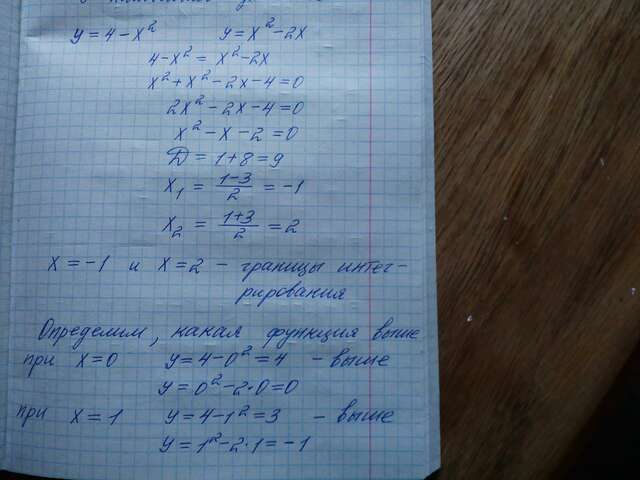 y = 4 - x² y = x² - 2x
4 - x² = x² - 2x
x² + x² - 2x - 4 = 0
2x² - 2x - 4 = 0
x² - x - 2 = 0
D = 1 + 8 = 9
x₁ = (1-3)/2 = -1
x₂ = (1+3)/2 = 2
x = -1 и x = 2 - границы интег-
рирования
Определим, какая функция выше
при x = 0 y = 4 - 0² = 4 - выше
y = 0² - 2·0 = 0
при x = 1 y = 4 - 1² = 3 - выше
y = 1² - 2·1 = -1